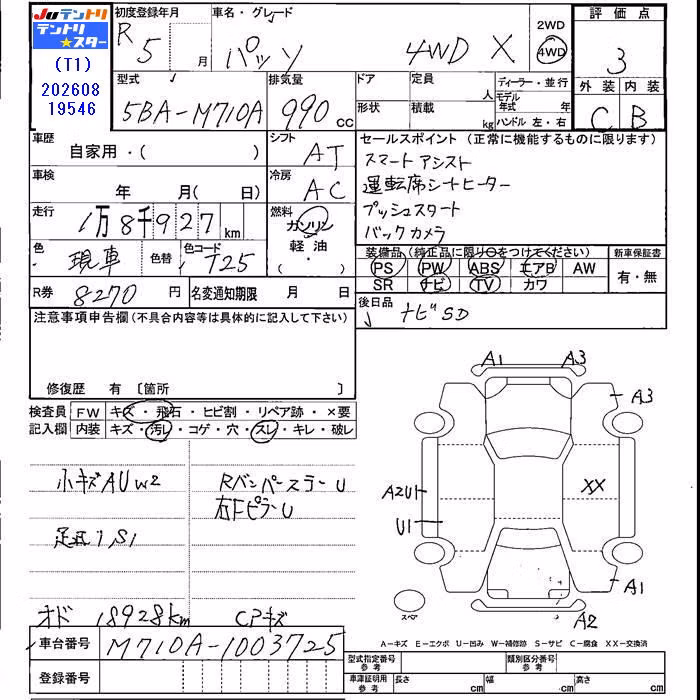 Juテントリ
テントリ
★スター
(T1)
202608
19546
初度登録年月
R 5 月
車名・グレード
パッソ 4WD X
2WD
4WD
評価点
3
外装 内装
C B
型式
5BA-M710A
排気量
990 cc
ドア
形状
定員 人
積載 kg
ディーラー・並行
モデル年式 年
ハンドル 左・右
車歴
自家用・( )
シフト
AT
車検
年 月( 日)
冷房
AC
走行
1万8千927 km
燃料
ガソリン
軽油
・
色
現車
色替
色コード
T25
R券
8270 円
名変通知期限 月 日
セールスポイント (正常に機能するものに限ります)
スマート アシスト
運転席シートヒーター
プッシュスタート
バックカメラ
装備品 (純正品に限り○をつけてください)
新車保証書
PS PW ABS エアB AW
SR ナビ TV カワ
有・無
後日品
ナビSD
注意事項申告欄 (不具合内容等は具体的に記入して下さい)
修復歴 有 〔箇所 〕
検査員 FW キズ・飛石・ヒビ割・リペア跡・×要
記入欄 内装 キズ・汚レ・コゲ・穴・スレ・キレ・破レ
小キズAUW2
RバンパーステーU
右FピラーU
足瓦1,S1
オド 18928km
CPキズ
A1 A3
A3
A2U1
XX
U1
A1
A2
スペア
車台番号
M710A-1003725
登録番号
A-キズ E-エクボ U-凹み W-補修跡 S-サビ C-腐食 XX-交換済
型式指定番号
参考
類別区分番号
参考
車庫証明用
参考
長さ cm 幅 cm 高さ cm